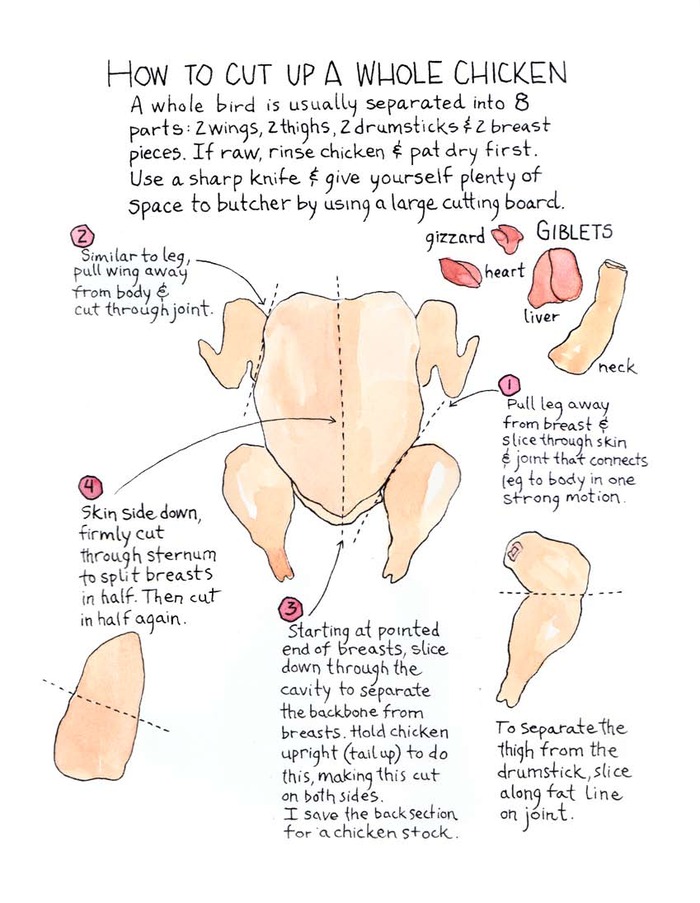 HOW TO CUT UP A WHOLE CHICKEN
A whole bird is usually separated into 8
parts: 2 wings, 2 thighs, 2 drumsticks & 2 breast
pieces. If raw, rinse chicken & pat dry first.
Use a sharp knife & give yourself plenty of
space to butcher by using a large cutting board.
2
Similar to leg,
pull wing away
from body &
cut through joint.
GIBLETS
gizzard
heart
liver
neck
1
Pull leg away
from breast &
slice through skin
& joint that connects
leg to body in one
strong motion.
4
Skin side down,
firmly cut
through sternum
to split breasts
in half. Then cut
in half again.
3
Starting at pointed
end of breasts, slice
down through the
cavity to separate
the backbone from
breasts. Hold chicken
upright (tail up) to do
this, making this cut
on both sides.
I save the back section
for a chicken stock.
To separate the
thigh from the
drumstick, slice
along fat line
on joint.